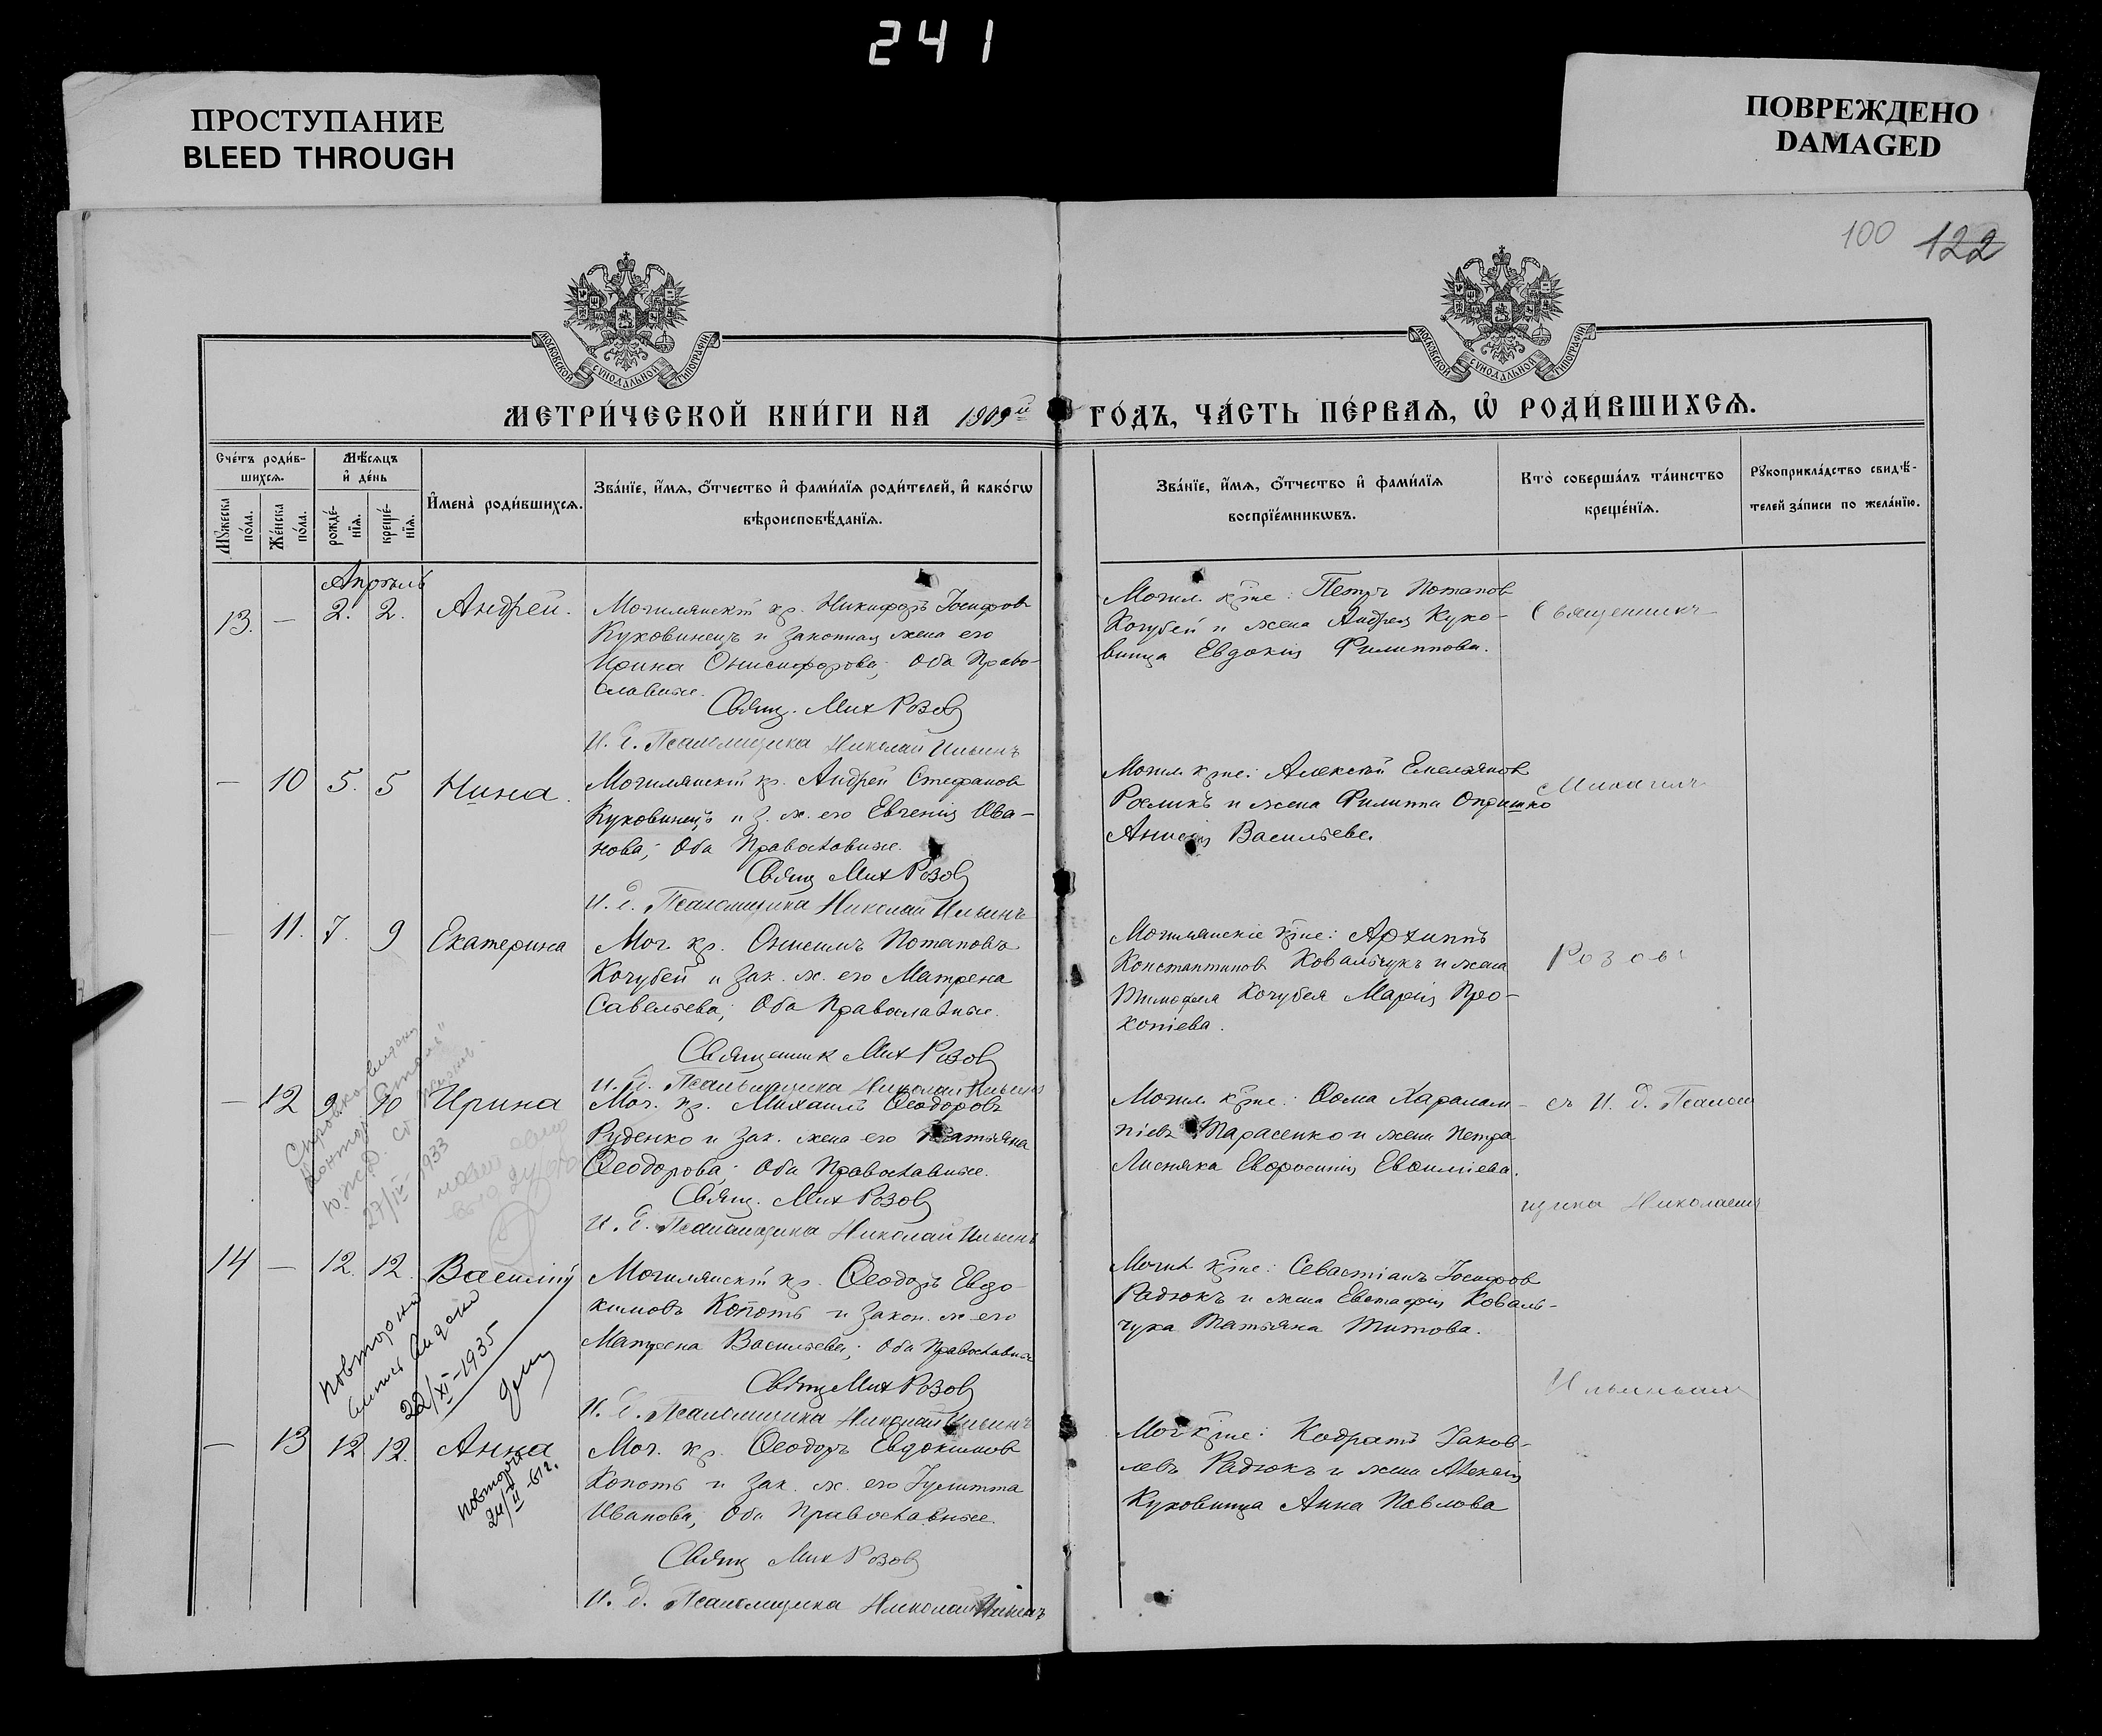 241
ПРОСТУПАНИЕ
BLEED THROUGH
ПОВРЕЖДЕНО
DAMAGED
100 122
МОСКОВСКОЙ СѴНОДАЛЬНОЙ ТИПОГРАФІИ
МОСКОВСКОЙ СѴНОДАЛЬНОЙ ТИПОГРАФІИ
МЕТРИ́ЧЕСКОЙ КНИ́ГИ НА 1909й ГО́ДЪ, ЧА́СТЬ ПЕ́РВАѦ, Ѡ҆ РОДИ́ВШИХСѦ.
Сче́тъ роди́в-
шихсѧ.
Мꙋ́жеска по́ла.
Же́нска по́ла.
Мѣ́сѧцъ и҆ де́нь
рожде́-
нїѧ.
креще́-
нїѧ.
И҆мена̀ роди́вшихсѧ.
Зва́нїе, и҆́мѧ, ѻ҆́тчество и҆ фами́лїѧ роди́телей, и҆ како́гѡ
вѣроисповѣ́данїѧ.
Зва́нїе, и҆́мѧ, ѻ҆́тчество и҆ фами́лїѧ
воспрїе́мникѡвъ.
Кто̀ соверша́лъ та́инство
креще́нїѧ.
Рꙋкоприкла́дство свидѣ́-
телей за́писи по жела́нїю.
Апрѣль
13. — 2. 2. Андрей.
Могилянскій кр. Никифоръ Іосифовъ
Куховинецъ и законная жена его
Ирина Онисифорова; Оба Право-
славные.
Свящ. Мих Розов
И. д. Псаломщика Николай Ильинъ
Могил. кр̃не: Петръ Потапов
Кочубей и жена Андрея Кухо-
винца Евдокія Филиппова.
Священникъ
— 10 5. 5 Нина.
Могилянскій кр. Андрей Стефанов
Куховинецъ и з. ж. его Евгенія Ива-
нова; Оба Православные.
Свящ Мих Розов
И. д. Псаломщика Николай Ильинъ
Могил. кр̃не: Алексѣй Емельянов
Росликъ и жена Филиппа Опришко
Анисія Васильева.
Михаилъ
— 11. 7. 9 Екатерина
Мог. кр. Онисимъ Потаповъ
Кочубей и зак. ж. его Матрена
Савельева; Оба Православные.
Священник Мих Розов
И. д. Псаломщика Николай Ильинъ
Могилянскіе кр̃не: Архиппъ
Константинов Ковальчукъ и жена
Тимофея Кочубея Марія Про-
копіева.
Розовъ
— 12 9. 10 Ирина
Мог. кр. Михаилъ Ѳеодоровъ
Руденко и зак. жена его Татьяна
Ѳеодорова; Оба Православные.
Свящ. Мих Розов
И. д. Псаломщика Николай Ильинъ
Могил. кр̃не: Ѳома Харалам-
піевъ Тарасенко и жена Петра
Лисняка Евфросинія Евфиміева.
съ И. д. Псалом
щика Николаемъ
Справка видана
Ю.Ж.Д. ст
27/IV-1933
14 — 12. 12. Василій
Могилянскій кр. Ѳеодоръ Евдо-
кимовъ Копоть и закон. ж. его
Матрена Васильева; Оба Православные
Свящ Мих Розов
И. д. Псаломщика Николай Ильинъ
Могил кр̃не: Севастіанъ Іосифов
Радюкъ и жена Евстафія Коваль-
чука Татьяна Титова.
Ильинымъ
повторна
видана
22/XI-1935
— 13 12 12. Анна
Мог. кр. Ѳеодоръ Евдокимов
Копоть и зак. ж. его Іулитта
Иванова; Оба Православные.
Свящ Мих Розов
И. д. Псаломщика Николай Ильинъ
Мог кр̃не: Кодратъ Іаков-
левъ Радюкъ и жена Алексія
Куховинца Анна Павлова
повторно
24/II-61г.